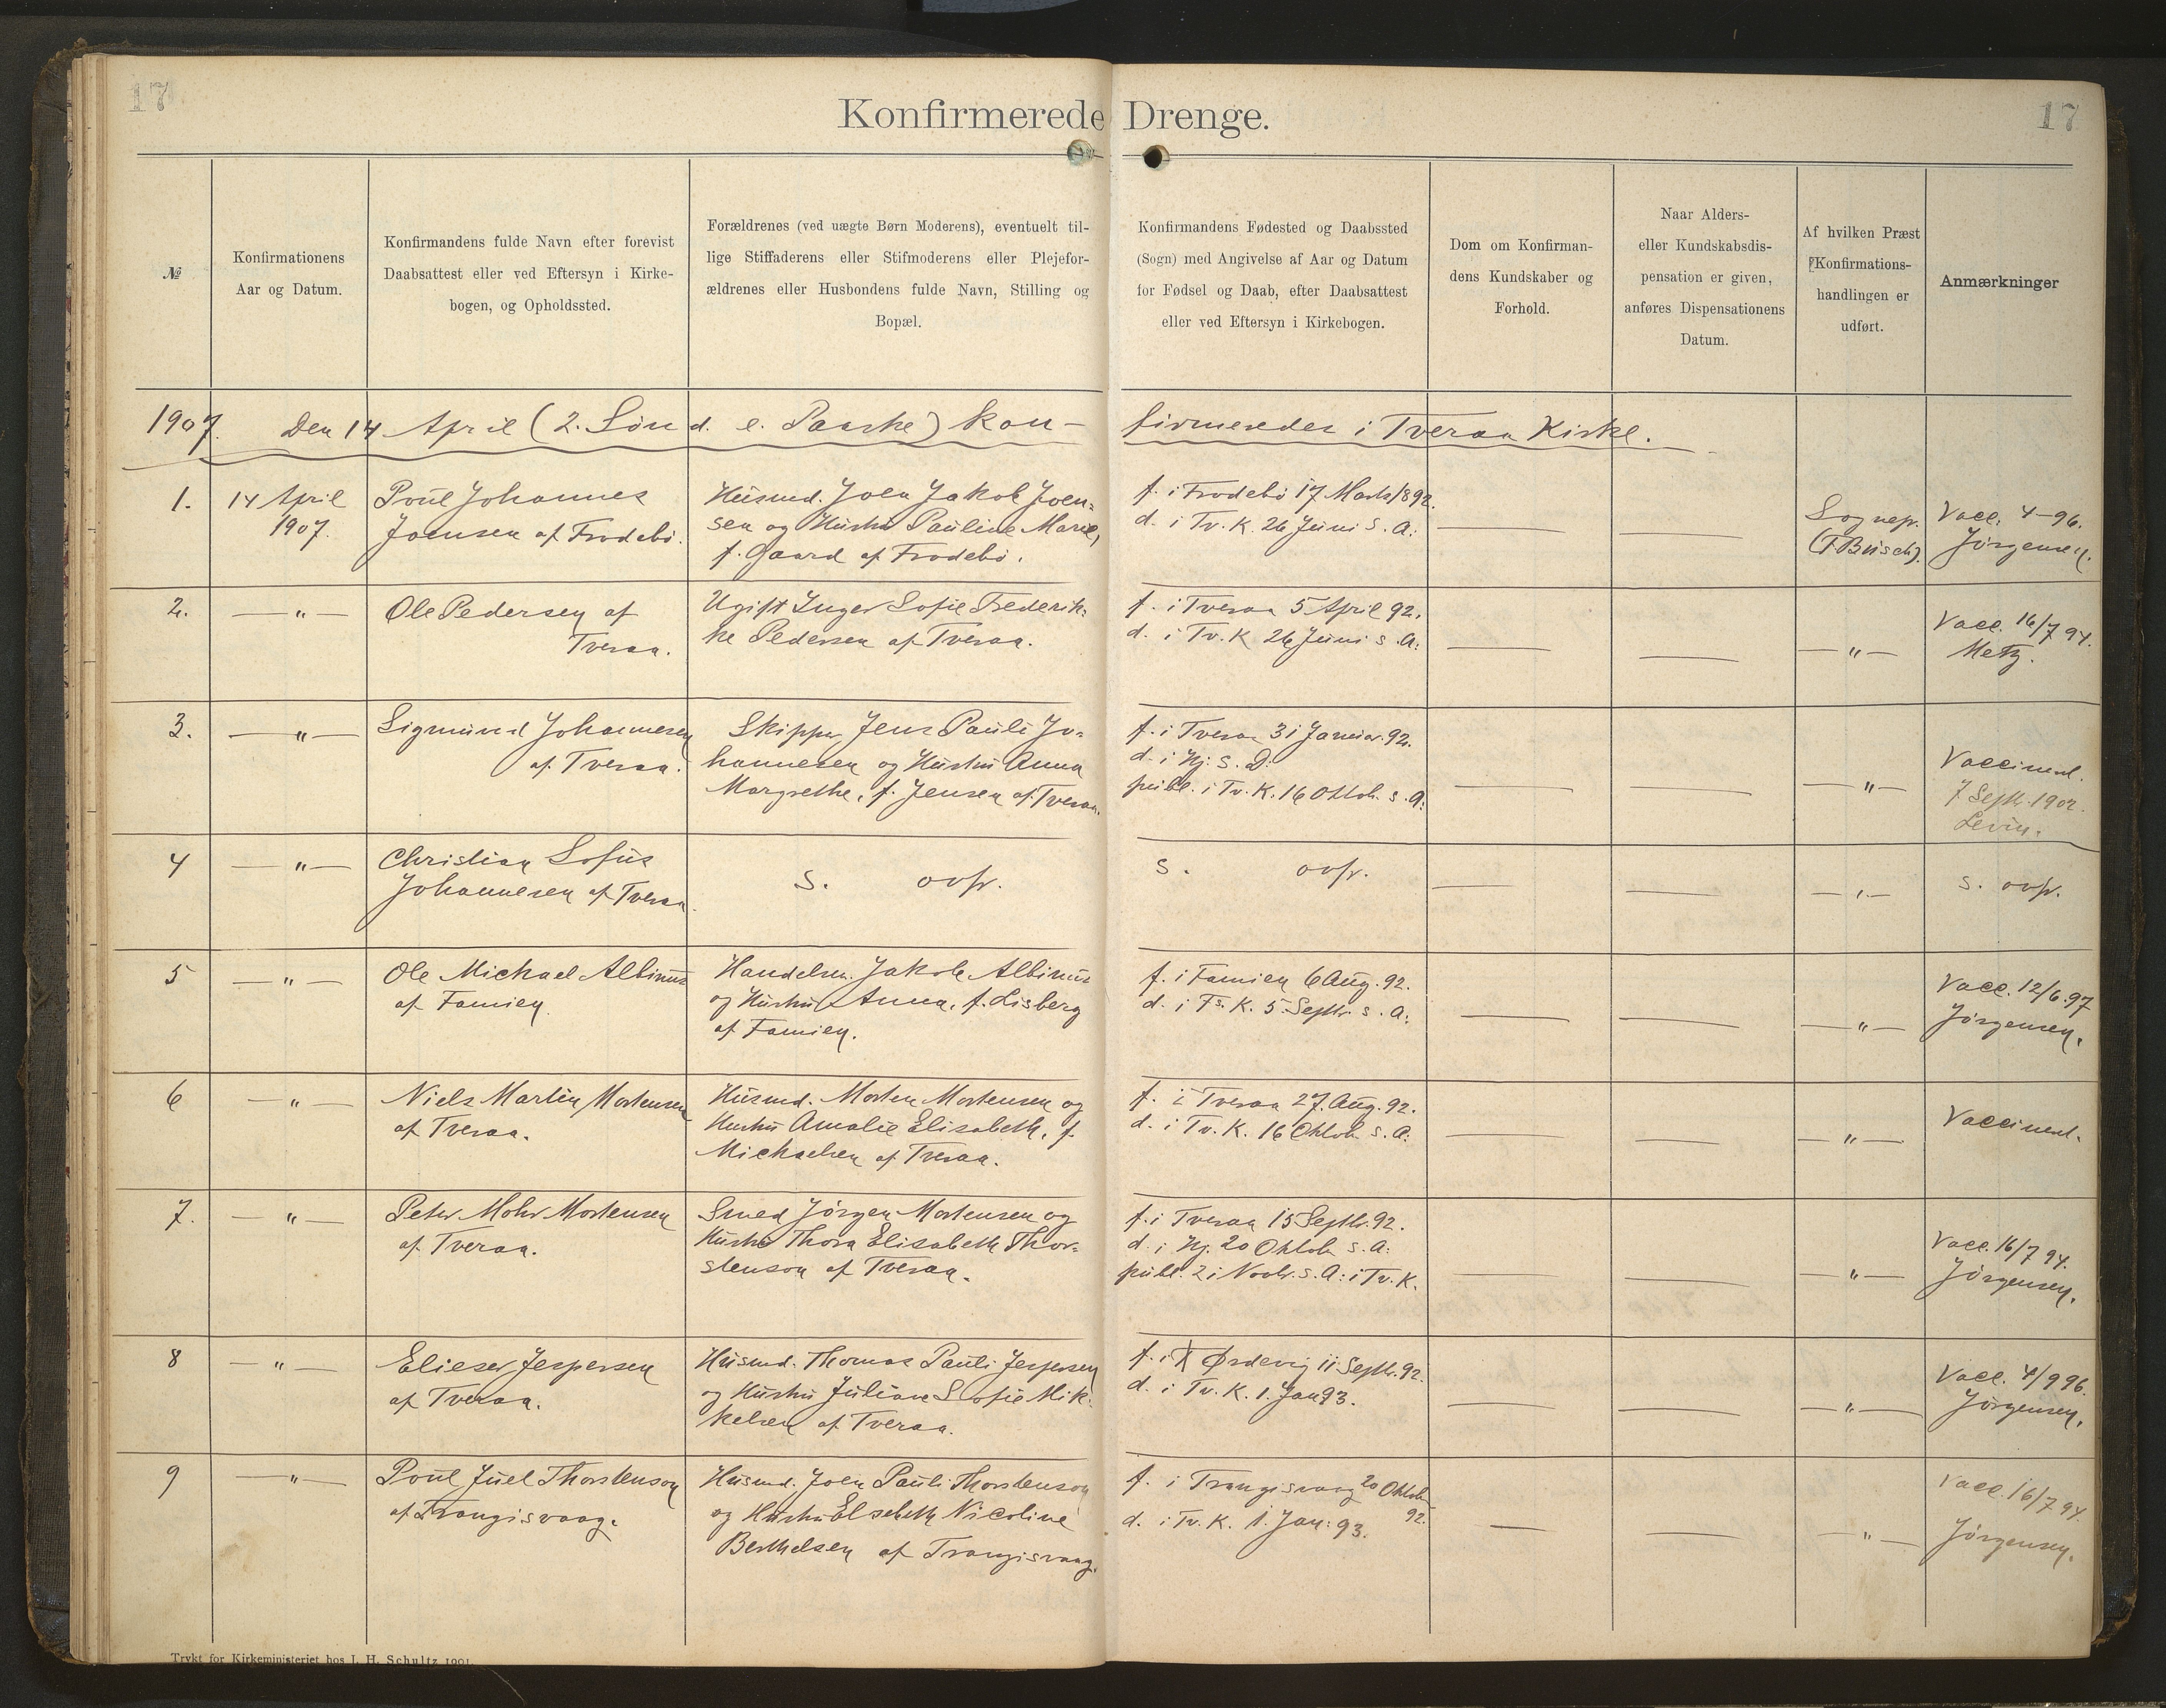 17
17
Konfirmerede Drenge.
№
Konfirmationens
Aar og Datum.
Konfirmandens fulde Navn efter forevist
Daabsattest eller ved Eftersyn i Kirke-
bogen, og Opholdssted.
Forældrenes (ved uægte Børn Moderens), eventuelt til-
lige Stiffaderens eller Stifmoderens eller Plejefor-
ældrenes eller Husbondens fulde Navn, Stilling og
Bopæl.
Konfirmandens Fødested og Daabssted
(Sogn) med Angivelse af Aar og Datum
for Fødsel og Daab, efter Daabsattest
eller ved Eftersyn i Kirkebogen.
Dom om Konfirman-
dens Kundskaber og
Forhold.
Naar Alders-
eller Kundskabsdis-
pensation er given,
anføres Dispensationens
Datum.
Af hvilken Præst
Konfirmations-
handlingen er
udført.
Anmærkninger
1907. Den 14 April (2. Sönd. e. Paaske) kon-
firmeredes i Tveraa Kirke.
1.
14 April
1907.
Poul Johannes
Joensen af Frodebö.
Husmd. Joen Jakob Joen-
sen og Hustru Pauline Marie,
f. Gaard af Frodebö.
f. i Frodebö 17 Marts 1892.
d. i Tv. K. 26 Juni s. A:
Sognepr.
(F Busch).
Vacc. 4-96.
Jörgensen.
2.
— " —
Ole Pedersen af
Tveraa.
Ugift Inger Sofie Frederik-
ke Pedersen af Tveraa.
f. i Tveraa 5 April 92.
d. i Tv. K 26 Juni s. A:
— " —
Vacc. 16/7 94.
Metz.
3.
— " —
Sigmund Johannesen
af Tveraa.
Skipper Jens Pauli Jo-
hannesen og Hustru Anna
Margrethe, f. Jensen af Tveraa.
f. i Tveraa 31 Januar 92.
d. i Hj. s. D.
publ. i Tv. K. 16 Oktob. s. A:
— " —
Vaccineret.
7 Septr. 1902.
Levin.
4
— " —
Christian Sofus
Johannesen af Tveraa.
s. ovfr.
s. ovfr.
— " —
s. ovfr.
5
— " —
Ole Michael Albinus
af Famien.
Handelsm. Jakob Albinus
og Hustru Anna, f. Lisberg
af Famien.
f. i Famien 6 Aug. 92.
d. i Fs. K. 5 Septr. s. A:
— " —
Vacc. 12/6.97
Jörgensen.
6
— " —
Niels Martin Mortensen
af Tveraa.
Husmd. Morten Mortensen og
Hustru Amalie Elisabeth, f.
Michaelsen af Tveraa.
f. i Tveraa 27. Aug. 92.
d. i Tv. K. 16 Oktob. s. A:
— " —
Vaccineret.
7.
— " —
Peter Mohr Mortensen
af Tveraa.
Smed Jörgen Mortensen og
Hustru Thora Elisabeth Thor-
stenson af Tveraa.
f. i Tveraa 15 Septbr. 92.
d. i Hj. 20 Oktob. s. A:
publ. 21 Novbr. s. A: i Tv. K.
— " —
Vacc. 16/7 94.
Jörgensen.
8
— " —
Elieser Jespersen
af Tveraa.
Husmd. Thomas Pauli Jespersen
og Hustru Juliane Sofie Mik-
kelsen af Tveraa.
f. i Ørdevig 11 Septbr. 92.
d. i Tv. K. 1. Jan 93.
— " —
Vacc. 4/9 96.
Jörgensen.
9
— " —
Poul Juel Thorstenson
af Trangisvaag.
Husmd. Joen Pauli Thorstenson
og Hustru Elsebeth Nicoline
Berthelsen af Trangisvaag.
f. i Trangisvaag 20 Oktob.
92.
d. i Tv. K. 1. Jan: 93.
— " —
Vacc. 16/7 94.
Jörgensen.
Trykt for Kirkeministeriet hos J. H. Schultz 1901.